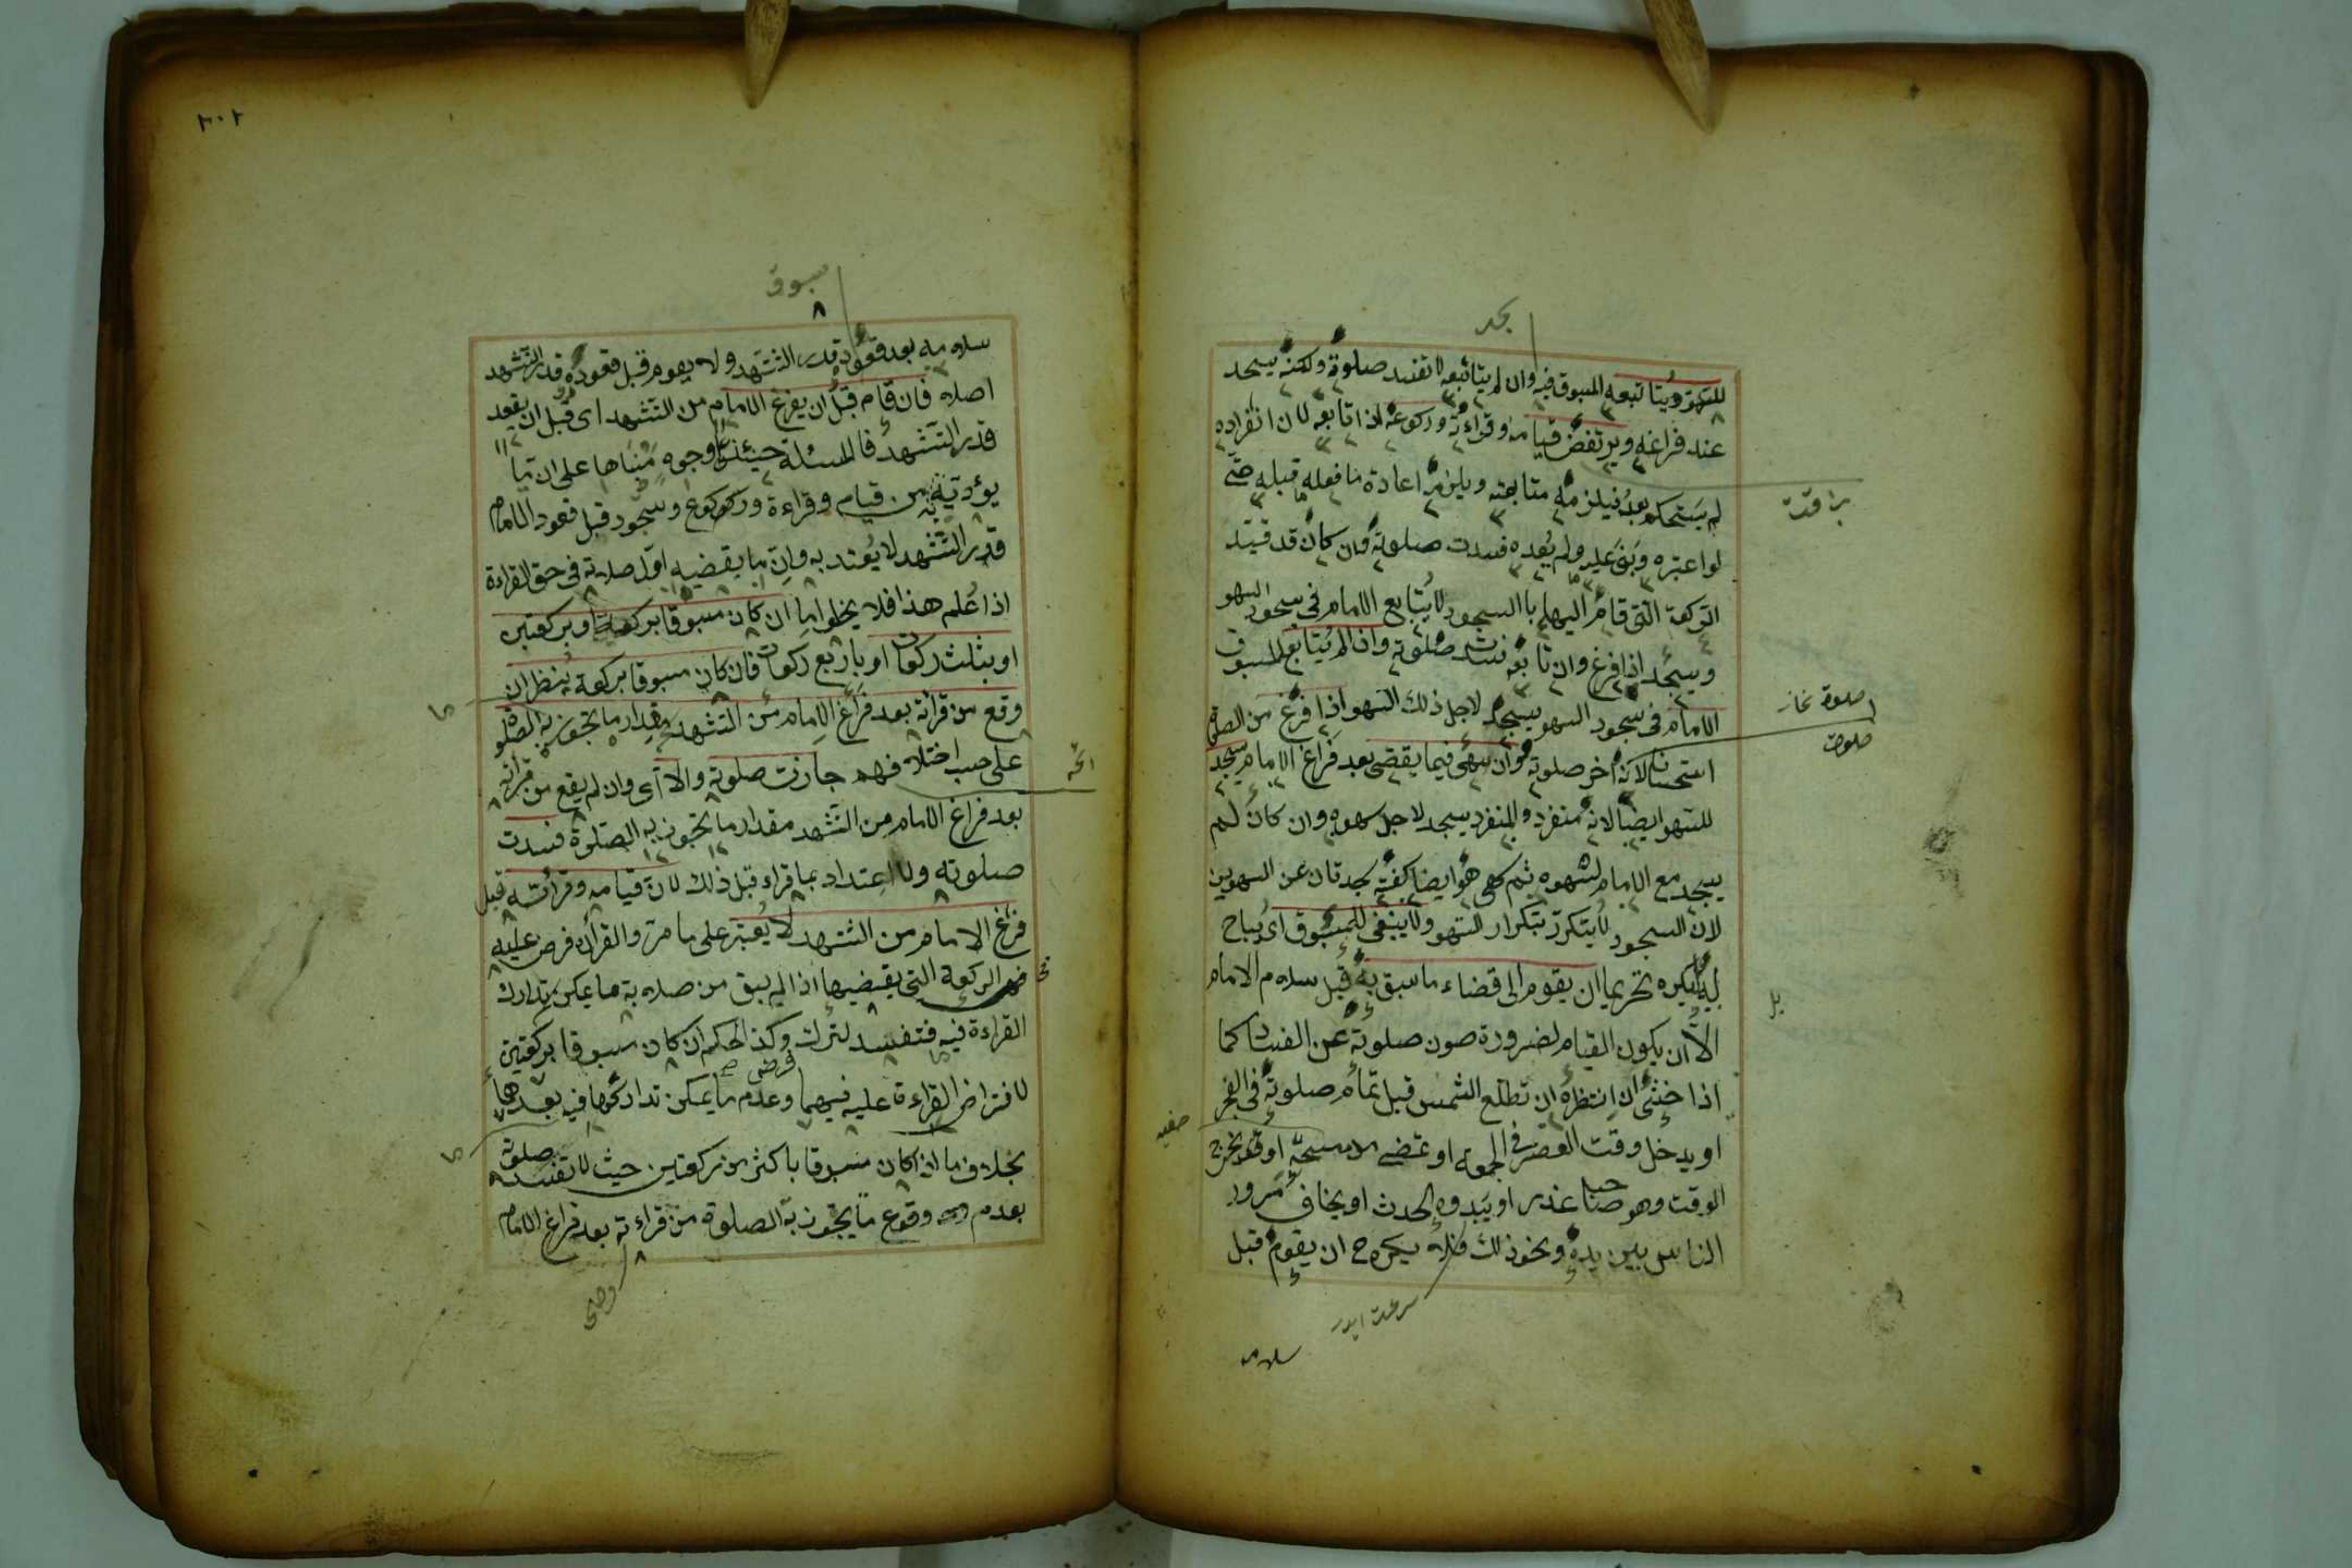 للسهو ويتابعه المسبوق فيه وان لم يتابعه لا تفسد صلوته ولكنه يسجد
عند فراغه ويرتفض قيامه وقراءته وركوعه اذا تابعه لان انفراده
لم يستحكم بعد فيلزمه متابعته ويلزمه اعادة ما فعله قبله حتى
لو اعتبره وبنى عليه ولم يعده فسدت صلوته وان كان قد قيد
الركعة التى قام اليها بالسجود لا يتابع الامام فى سجود السهو
ويسجد اذا فرغ وان تابعه فسدت صلوته واذا لم يتابع المسبوق
الامام فى سجود السهو يسجد لاجل ذلك السهو اذا فرغ من الصلوة
استحسانا لانه اخر صلوته وان سهى فيما يقضى بعد فراغ الامام يسجد
للسهو ايضا لانه منفرد والمنفرد يسجد لاجل سهوه وان كان لم
يسجد مع الامام لسهوه ثم سهى هو ايضا كفته سجدتان عن السهوين
لان السجود لا يتكرر بتكرار السهو ولا ينبغى للمسبوق اى لا يباح
له بل يكره تحريما ان يقوم الى قضاء ما سبق به قبل سلام الامام
الا ان يكون القيام لضرورة صون صلوته عن الفساد كما
اذا خشى ان انتظره ان تطلع الشمس قبل تمام صلوته فى الفجر
او يدخل وقت العصر فى الجمعة او تمضى مدة مسحه او يخرج
الوقت وهو صاحب عذر او يبدوه الحدث او يخاف مرور
الناس بين يديه ونحو ذلك فلا يكره ح ان يقوم قبل
سلامه
صلوة نماز
صلوت
بل
٢٠٢
سبوق
سلامه بعد قعوده قدر التشهد ولا يقوم قبل قعوده قدر التشهد
اصلا فان قام قبل ان يفرغ الامام من التشهد اى قبل ان يقعد
قدر التشهد فالمسئلة حينئذ على وجوه مبناها على ان ما
يؤديه من قيام وقراءة وركوع وسجود قبل قعود الامام
قدر التشهد لا يعتد به وان ما يقضيه اول صلاته فى حق القراءة
اذا علم هذا فلا يخلو اما ان كان مسبوقا بركعة او بركعتين
او بثلث ركعات او باربع ركعات فان كان مسبوقا بركعة ينظر ان
وقع من قرائته بعد فراغ الامام من التشهد مقدار ما تجوز به الصلوة
على حسب اختلافهم جازت صلوته والا اى وان لم يقع من قرائته
بعد فراغ الامام من التشهد مقدار ما تجوز به الصلوة فسدت
صلوته ولا اعتداد بما قراء قبل ذلك لان قيامه وقرائته قبل
فراغ الامام من التشهد لا يعتبر على ما مر والقراءة فرض عليه
فى الركعة التى يقضيها اذ لم يبق من صلاته ما يمكن تدارك
القراءة فيه فتفسد لتركه وكذا الحكم ان كان مسبوقا بركعتين
لافتراض القراءة عليه فيهما وعدم ما يمكن تداركها فيه بعدها
بخلاف ما اذا كان مسبوقا باكثر من ركعتين حيث لا تفسد صلوته
بعدم وقوع ما يجوز به الصلوة من قراءته بعد فراغ الامام